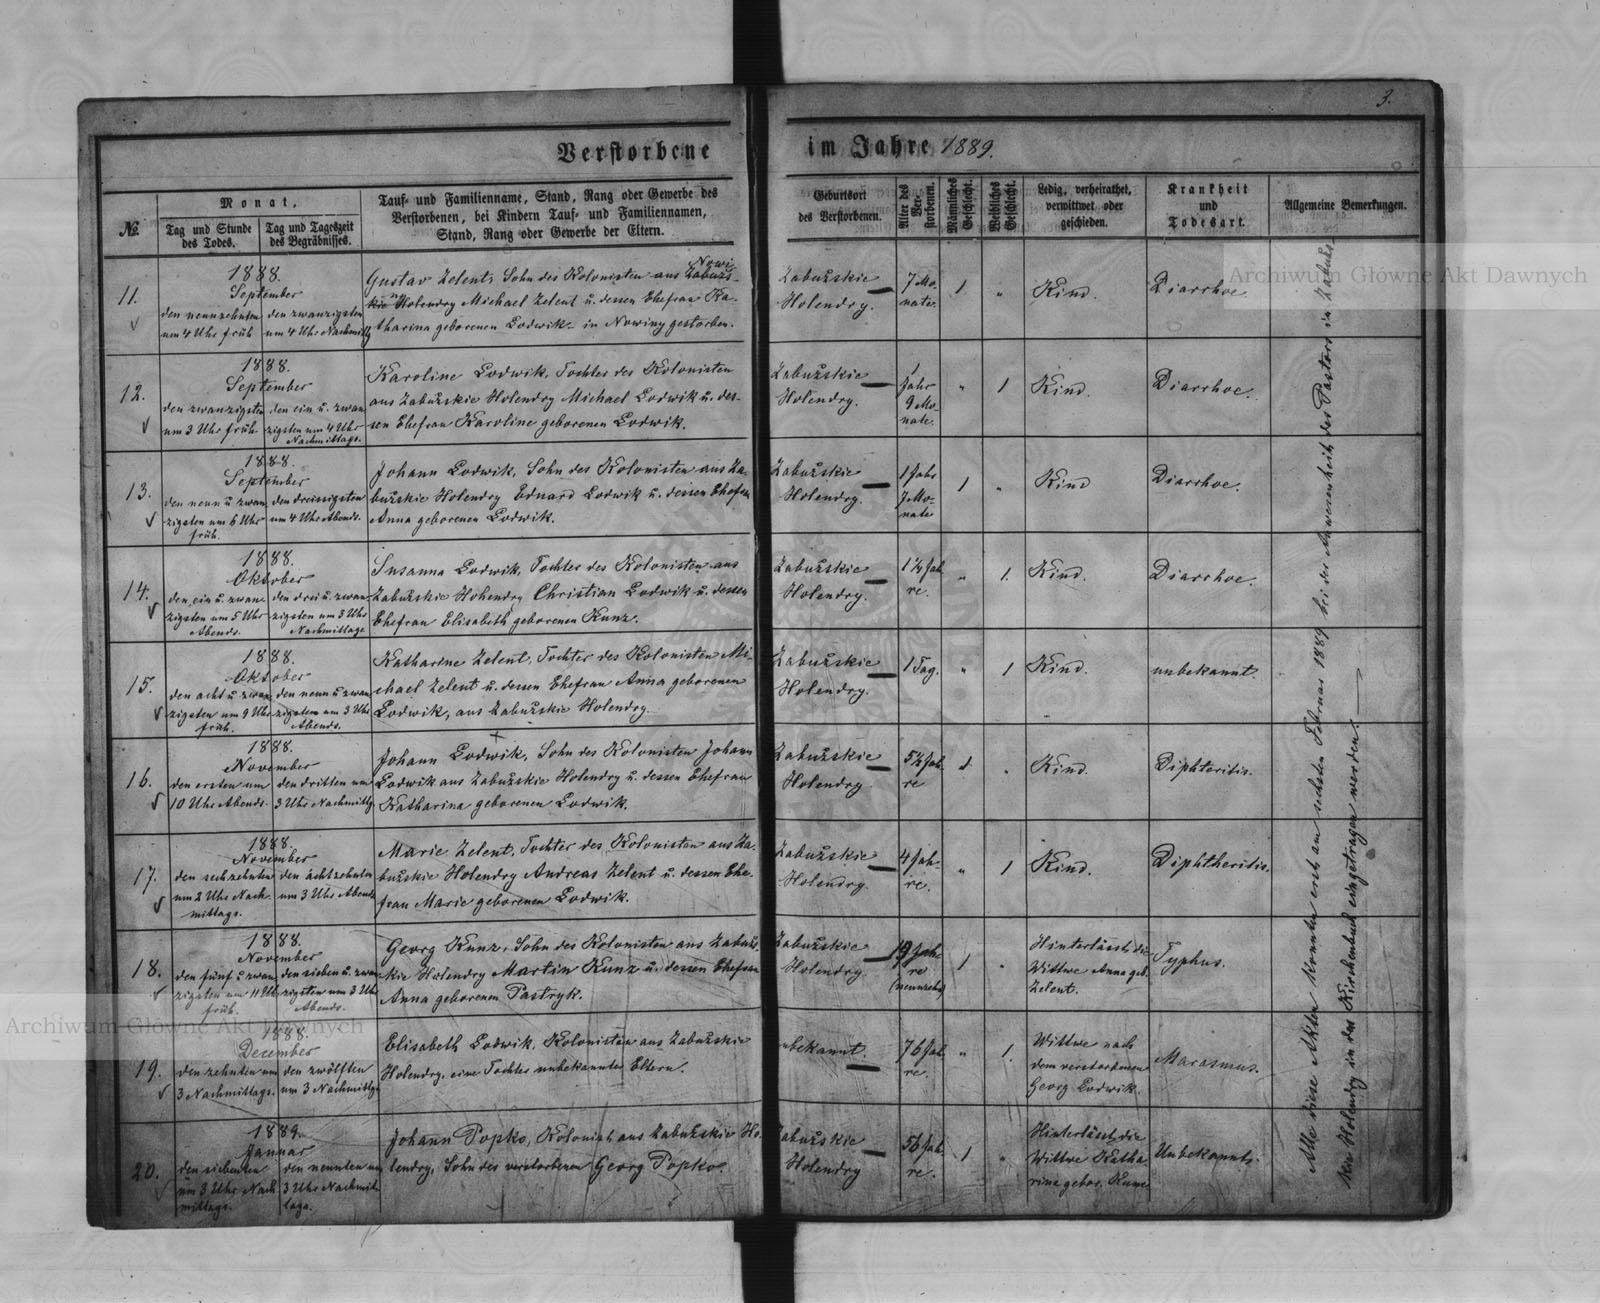 3.
Verstorbene im Jahre 1889.
№
Monat.
Tag und Stunde des Todes.
Tag und Tageszeit des Begräbnisses.
Tauf- und Familienname, Stand, Rang oder Gewerbe des
Verstorbenen, bei Kindern Tauf- und Familiennamen,
Stand, Rang oder Gewerbe der Eltern.
Geburtsort
des Verstorbenen.
Alter des Verstorbenen.
Männliches Geschlecht.
Weibliches Geschlecht.
Ledig, verheirathet,
verwittwet oder
geschieden.
Krankheit
und
Todesart.
Allgemeine Bemerkungen.
11.
1888.
September
den neunzehnten
um 4 Uhr früh
den zwanzigsten
um 4 Uhr Nachmittg
Nowi
Gustav Zelent, Sohn des Kolonisten aus Zabuzs-
kie Holendry Michael Zelent u. dessen Ehefrau Ka-
tharina geborenen Lodwik - in Nowiny gestorben.
Zabužskie
Holendry.
7 Mo-
nate.
1
"
Kind.
Diarrhoe
12.
1888.
September
den zwanzigsten
um 3 Uhr früh.
den ein u. zwan
zigsten um 4 Uhr
Nachmittags.
Karoline Lodwik, Tochter des Kolonisten
aus Zabužskie Holendry Michael Lodwik u. des-
sen Ehefrau Karoline geborenen Lodwik.
Zabužskie
Holendry.
1
Jahr
9 Mo-
nate.
"
1
Kind.
Diarrhoe.
13.
1888.
September
den neun u zwan
zigsten um 6 Uhr
früh.
den dreissigsten
um 4 Uhr Abends.
Johann Lodwik, Sohn des Kolonisten aus Za-
bužskie Holendry Eduard Lodwik u. dessen Ehefrau
Anna geborenen Lodwik.
Zabužskie
Holendry.
1 Jahr
7 Mo-
nate
1
"
Kind
Diarrhoe.
14.
1888.
Oktober
den ein u. zwan-
zigsten um 5 Uhr
Abends.
den drei u. zwan
zigsten um 3 Uhr
Nachmittags
Susanna Lodwik, Tochter des Kolonisten aus
Zabužskie Hohendry Christian Lodwik u. dessen
Ehefrau Elisabeth geborenen Kunz.
Zabužskie
Holendry.
1½ Jah
re.
"
1.
Kind.
Diarrhoe.
15.
1888.
Oktober
den acht u zwan
zigsten um 9 Uhr
früh.
den neun u zwan
zigsten um 3 Uhr
Abends.
Katharine Zelent, Tochter des Kolonisten Mi-
chael Zelent u. dessen Ehefrau Anna geborenen
Lodwik, aus Zabužskie Holendry.
Zabužskie
Holendry.
1 Tag.
"
1
Kind.
unbekannt.
16.
1888.
November
den ersten um
10 Uhr Abends.
den dritten um
3 Uhr Nachmittg
Johann Lodwik, Sohn des Kolonisten Johann
Lodwik aus Zabužskie Holendry u. dessen Ehefrau
Katharina geborenen Lodwik.
Zabužskie
Holendry
5½ Jah
re
1
Kind.
Diphteritis.
17.
1888.
November
den sechzehnten
um 2 Uhr Nach-
mittags.
den achtzehnten
um 3 Uhr Abends
Marie Zelent, Tochter des Kolonisten aus Za-
bužskie Holendry Andreas Zelent u. dessen Ehe-
frau Marie geborenen Lodwik.
Zabužskie
Holendry.
4 Jah-
re.
"
1
Kind.
Diphtheritis.
18.
1888.
November
den fünf u zwan
zigsten um 11 Uhr
früh.
den sieben u. zwan
zigsten um 3 Uhr
Abends.
Georg Kunz, Sohn des Kolonisten aus Zabužs-
kie Holendry Martin Kunz u. dessen Ehefrau
Anna geborenen Pastryk.
Zabužskie
Holendry.
19 Jah-
re
(neunzehn)
1
"
Hinterlässt die
Wittwe Anna geb.
Zelent.
Typhus.
19.
1888.
December
den zehnten um
3 Nachmittags.
den zwölften
um 3 Nachmittgs
Elisabeth Lodwik, Kolonistin aus Zabužskie
Holendry, eine Tochter unbekannter Eltern.
unbekannt.
76 Jah
re.
"
1.
Wittwe nach
dem verstorbenen
Georg Lodwik.
Marasmus.
20.
1889.
Januar
den siebenten
um 3 Uhr Nach
mittags.
den neunten um
3 Uhr Nachmit-
tags.
Johann Popko, Kolonist aus Zabužskie Ho-
lendry, Sohn des verstorbenen Georg Popko.
Zabužskie
Holendry
56 Jah
re.
1
"
Hinterlässt die
Wittwe Katha
rina gebor. Kunz
Unbekannt.
Alle diese Akten konnten erst am sechsten Februar 1889 bei der Anwesenheit des Pastors in Zabužs
kie Holendry in das Kirchenbuch eingetragen werden. —
Archiwum Główne Akt Dawnych
Archiwum Główne Akt Dawnych